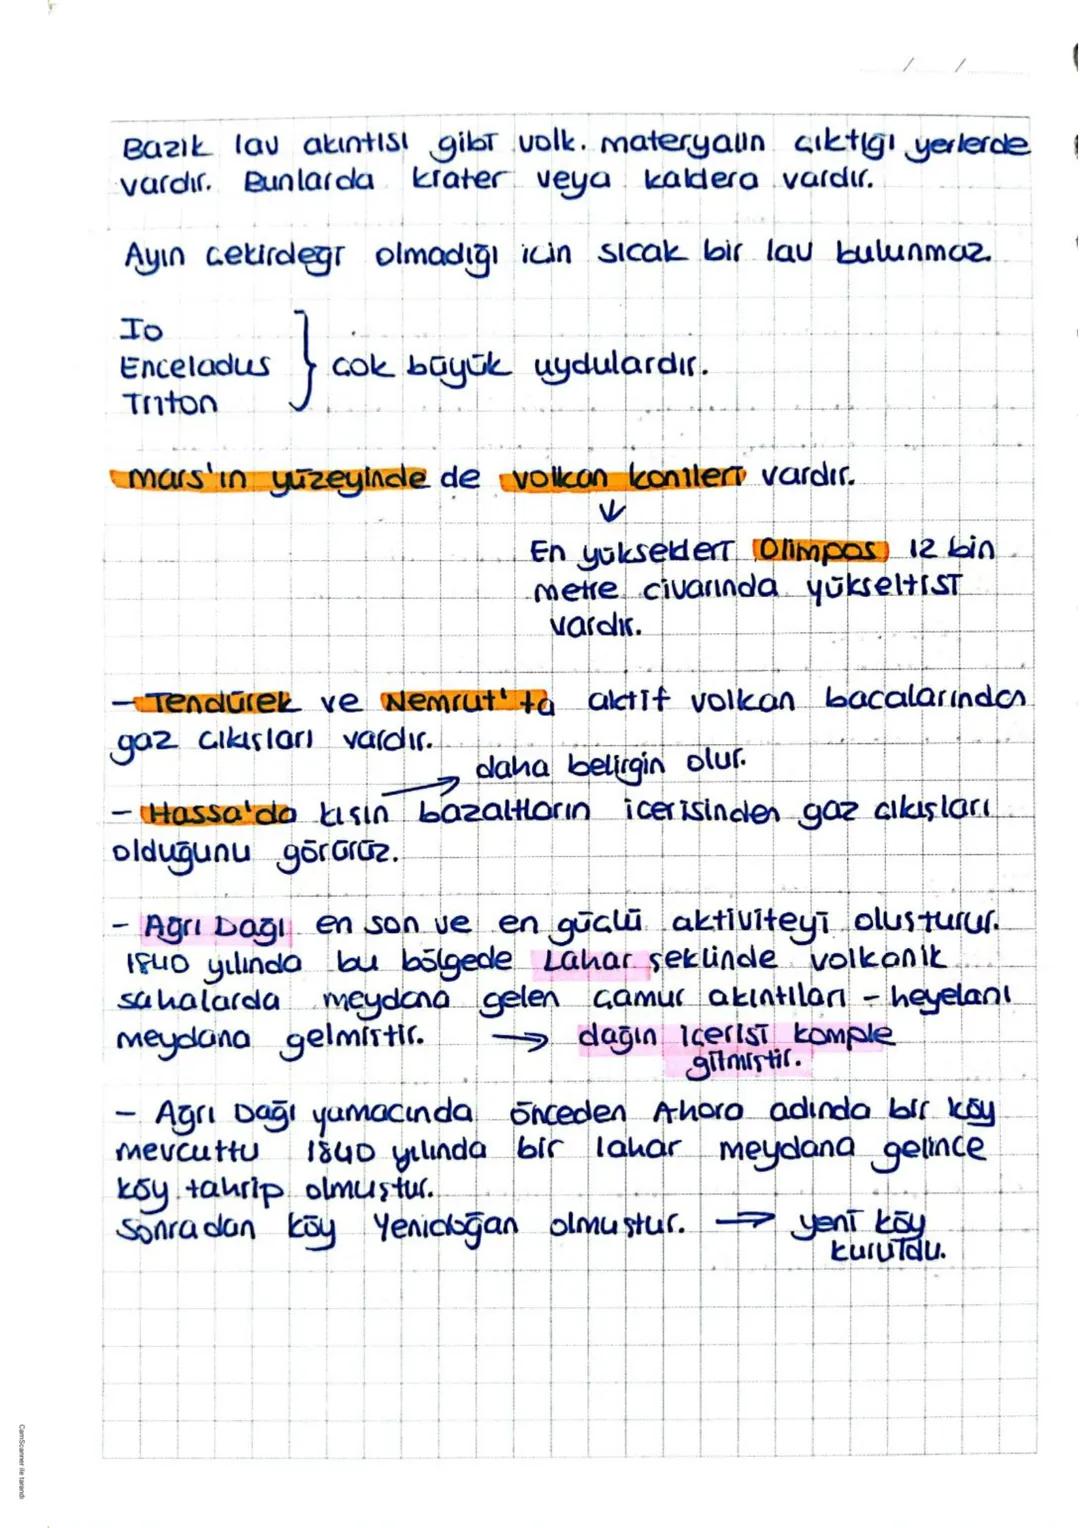 Bazik lav akıntısı gibi volk. materyalin çıktığı yerlerde
vardır. Bunlarda krater veya kaldera vardır.
Ayın çekirdeği olmadığı için sıcak bir lav bulunmaz.
Io
Enceladus
Triton
çok büyük uydulardır.
Mars'ın yüzeyinde de volkan konileri vardır.
En yüksekleri Olimpos 12 bin
metre civarında yükseltisi
vardır.
- Tendürek ve Nemrut'ta aktif volkan bacalarından
gaz çıkışları vardır.
daha belirgin olur.
- Hassa'da kışın bazaltların içerisinden gaz çıkışları
olduğunu görürüz.
- Ağrı Dağı en son ve en güçlü aktiviteyi oluşturur.
1840 yılında bu bölgede Lahar şeklinde volkanik
sahalarda meydana gelen çamur akıntıları - heyelanı
meydana gelmiştir. → dağın içerisi komple
gitmiştir.
- Ağrı Dağı yamacında önceden Ahora adında bir köy
mevcuttu 1840 yılında bir lahar meydana gelince
köy tahrip olmuştur.
Sonradan köy Yenidoğan olmuştur. → yeni köy
kuruldu.
CamScanner ile tarandı